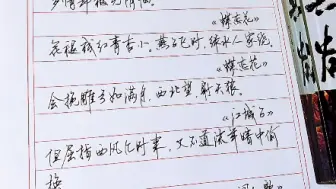 多情却被无情恼。
《蝶恋花》
花褪残红青杏小。燕子飞时,绿水人家绕。
《蝶恋花》
会挽雕弓如满月,西北望,射天狼。
《江城子》
但屈指西风几时来,又不道流年暗中偷
换。